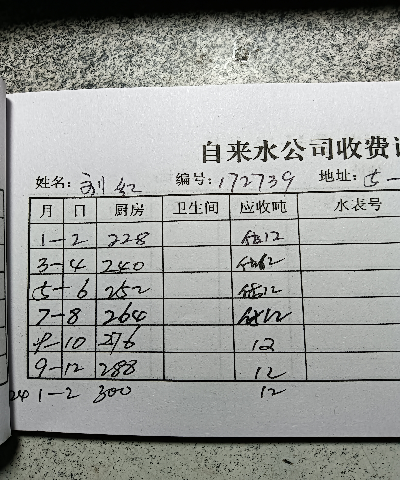 自来水公司收费
姓名: 刘红 编号: 172739 地址: 5-
月 日 厨房 卫生间 应收吨 水表号
1-2 228 估12
3-4 240 估12
5-6 252 估12
7-8 264 估12
9-10 276 12
9-12 288 12
24 1-2 300 12